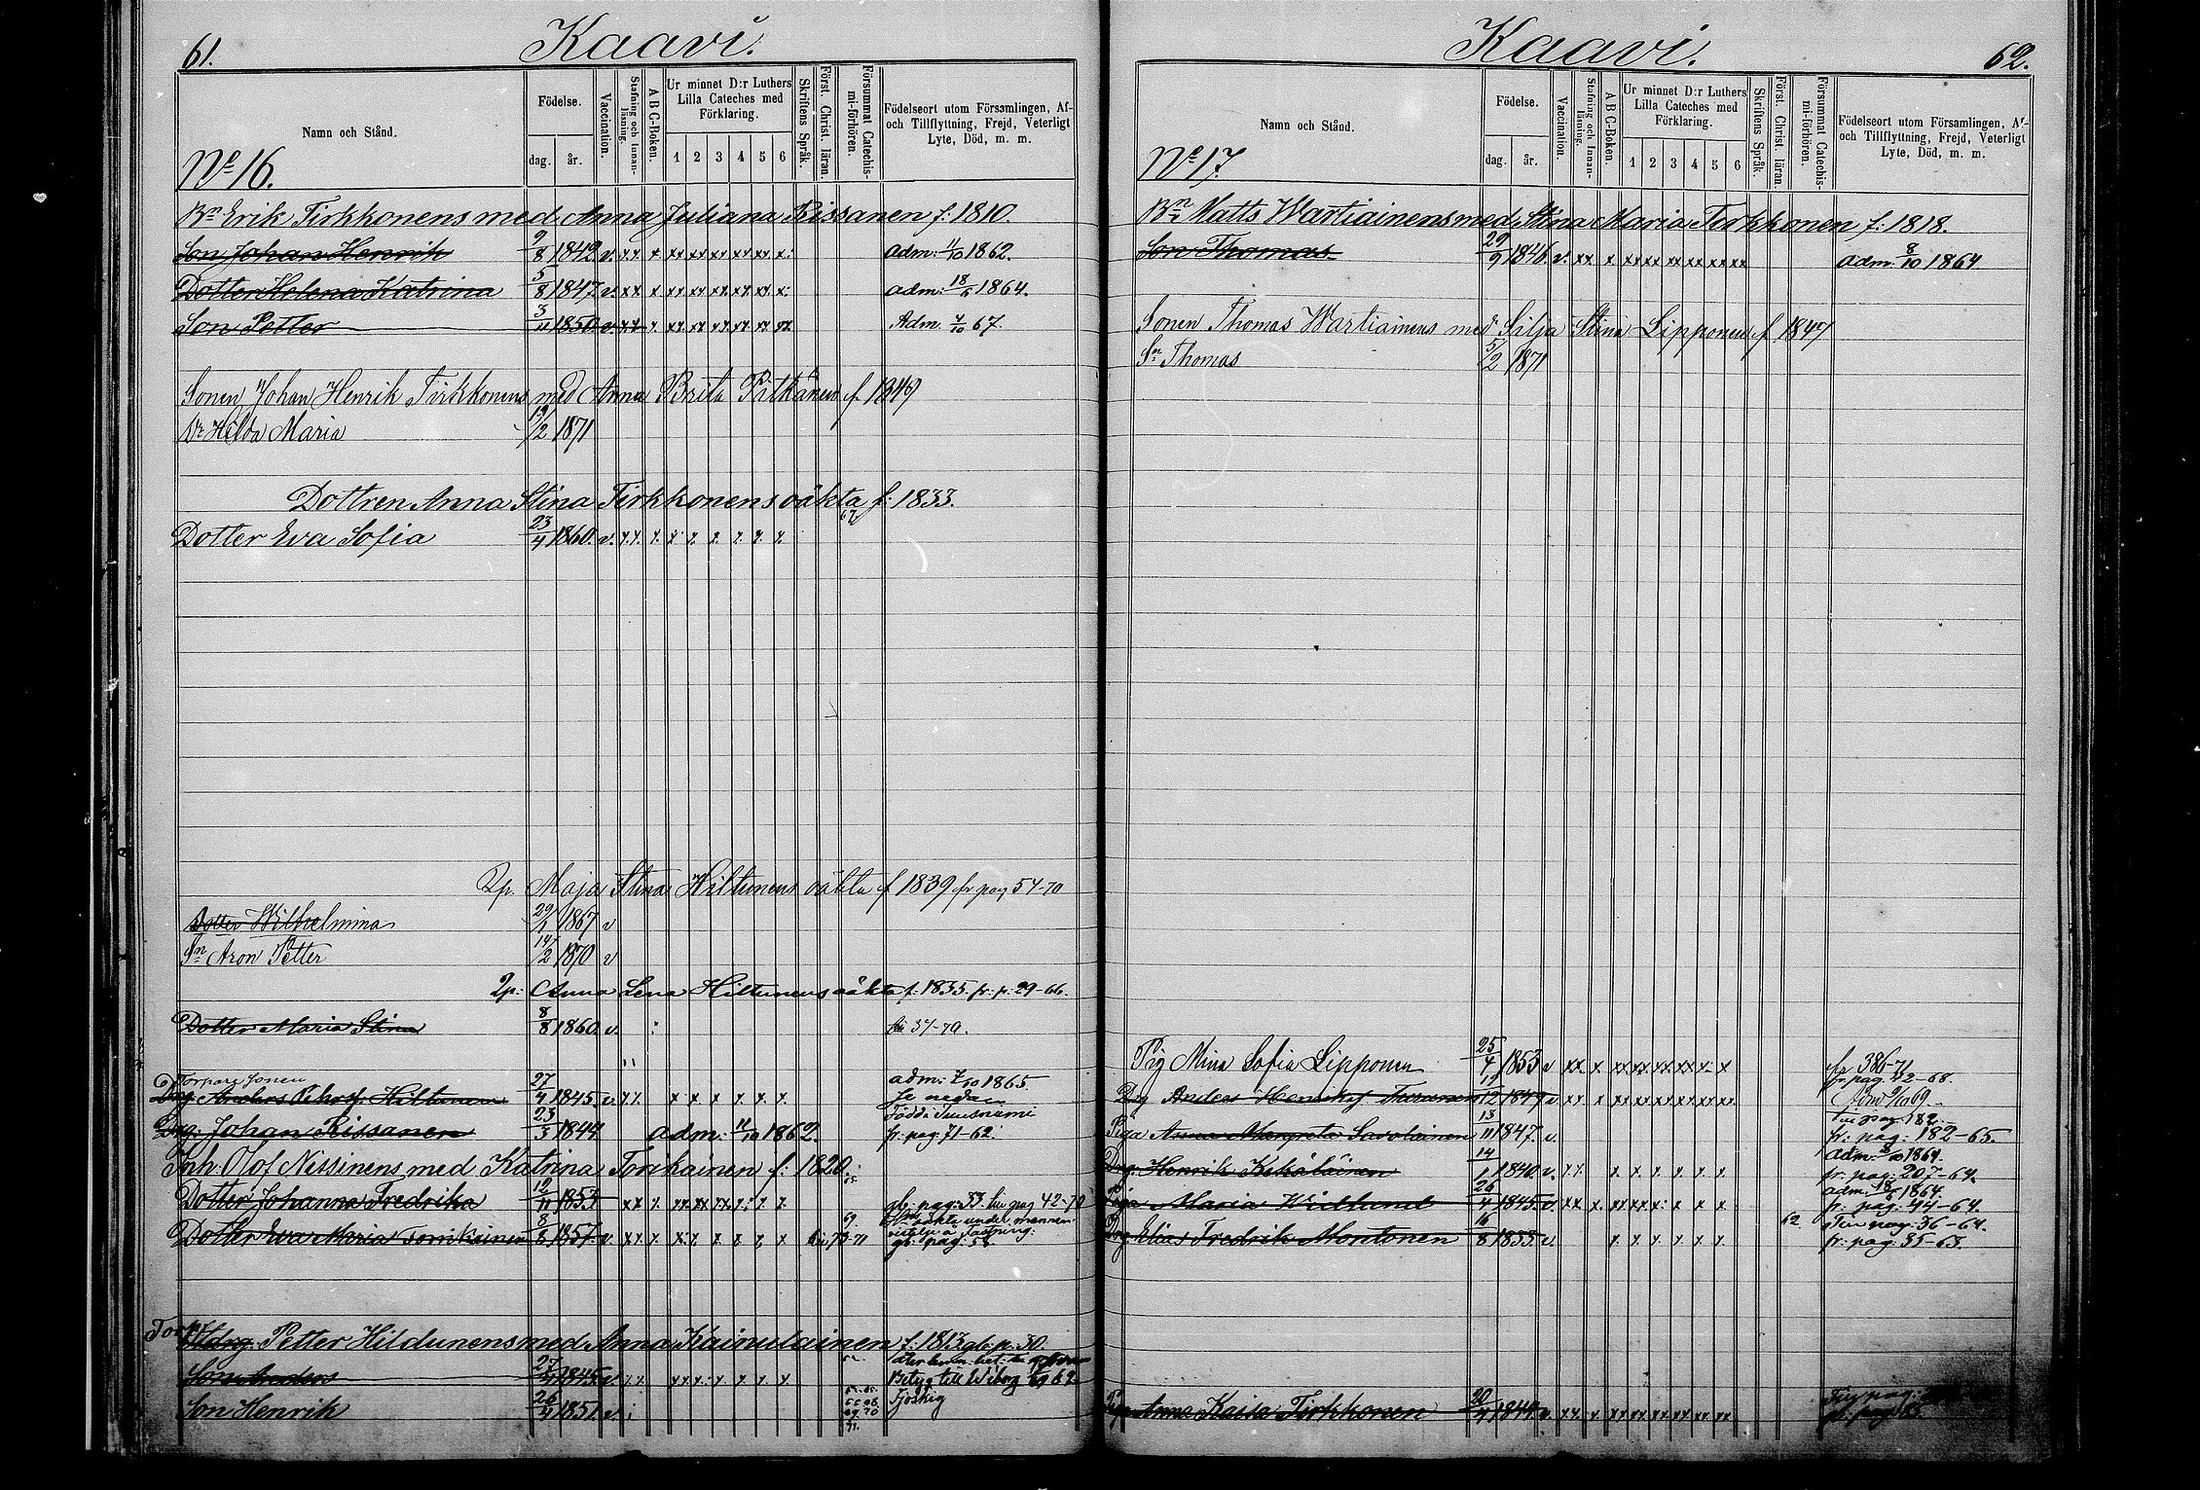 61.
Kaavi.
Namn och Stånd.
Födelse.
dag. år.
Vaccination.
Stafning och Innan-
läsning.
A B C-Boken.
Ur minnet D:r Luthers
Lilla Cateches med
Förklaring.
1 2 3 4 5 6
Skriftens Språk.
Först. Christ. läran.
Försummat Catechis-
mi-förhören.
Födelseort utom Församlingen, Af-
och Tillflyttning, Frejd, Veterligt
Lyte, Död, m. m.
No 16.
Bn Erik Tirkkonens med Anna Juliana Rissanen f: 1810.
Son Johan Henrik 9/8 1842. v. xx x xx xx xx xx xx x: adm: 11/10 1862.
Dotter Helena Katrina 5/8 1847. v. xx x xx xx xx xx xx x: adm: 18/6 1864.
Son Petter 3/11 1850. v. xx x xx xx xx xx xx xx Adm. 4/10 67.
Sonen Johan Henrik Tirkkonens med Anna Brita Pitkänen f 1849
Dr Hilda Maria 19/2 1871
Dottren Anna Stina Tirkkonens oäkta f: 1833.
67
Dotter Eva Sofia 23/4 1860. v. x.x. x. x x. x. x. x. x.
Qp. Maja Stina Hiltunens oäkta f 1839 fr pag 54-70
Dotter Wilhelmina 29/1 1867 v
Sn Aron Petter 14/2 1870 v
Qp: Anna Lena Hiltunens oäkta f. 1835. fr: p: 29-66.
Dotter Maria Stina 8/8 1860. v. : 37-70.
Torpare Sonen
Drg. Anders Hiltunen 27/4 1845. v. x x x x x x x x. adm: 7/10 1865.
Se nedan
Drg: Johan Rissanen 23/3 1844 adm: 11/10 1862. Född i Tuusniemi
fr. pag: 71-62.
Inh: Olof Nissinens med Katrina Torikainen f: 1820.
Dotter Johanna Fredrika 12/11 1853. xx x. xx. xx xx x. x. x. gl: pag: 33. till pag 42-70
Dotter Eva Maria Torikainen 8/8 1857. v. x. x. x. x. x. x x. x
gl: pag: 5
Torp: Petter Hildunens med Anna Kainulainen f: 1813. gl: p: 30.
Son Anders 27/4 1845. v. x x. xx x x x x x. Betyg till Wiborg 69
Son Henrik 26/4 1851. v. Fjåskig
Kaavi.
62.
Namn och Stånd.
Födelse.
dag. år.
Vaccination.
Stafning och Innan-
läsning.
A B C-Boken.
Ur minnet D:r Luthers
Lilla Cateches med
Förklaring.
1 2 3 4 5 6
Skriftens Språk.
Först. Christ. läran.
Försummat Catechis-
mi-förhören.
Födelseort utom Församlingen, Af-
och Tillflyttning, Frejd, Veterligt
Lyte, Död, m. m.
No 17.
Bn Matts Wartiainens med Stina Maria Tirkkonen f: 1818.
Son Thomas 29/9 1846. v. xx x xx xx xx xx xx xx adm: 8/10 1864.
Sonen Thomas Wartiainens med Silja Stina Lipponen f 1847
Sn Thomas 5/2 1871
Pig Mina Sofia Lipponen 25/4 1853 v xx x xx xx xx xx x x fr 386-71
Drg Anders Henriksf Turunen 19/12 1849 v xx x xx xx xx xx xx xx fr. pag: 42-68.
Piga Anna Margreta Savolainen 13/11 1847. v. fr: pag: 182-65.
adm: 8/10 1864.
Drg. Henrik Kekäläinen 14/1 1840. v. x x. x. x. x. x. x. x. fr. pag: 207-64.
adm: 18/6 1864.
Piga Maria Widlund 26/4 1845. v. xx x. xx xx x: x x x fr: pag: 44-64.
62 Till pag: 36-64.
Drg Elias Fredrik Montonen 16/8 1833. v. x x. x. x. x. x. x fr: pag: 35-63.
Piga Anna Kaisa Tirkkonen 20/4 1844. v. xx. x xx xx xx xx xx xx